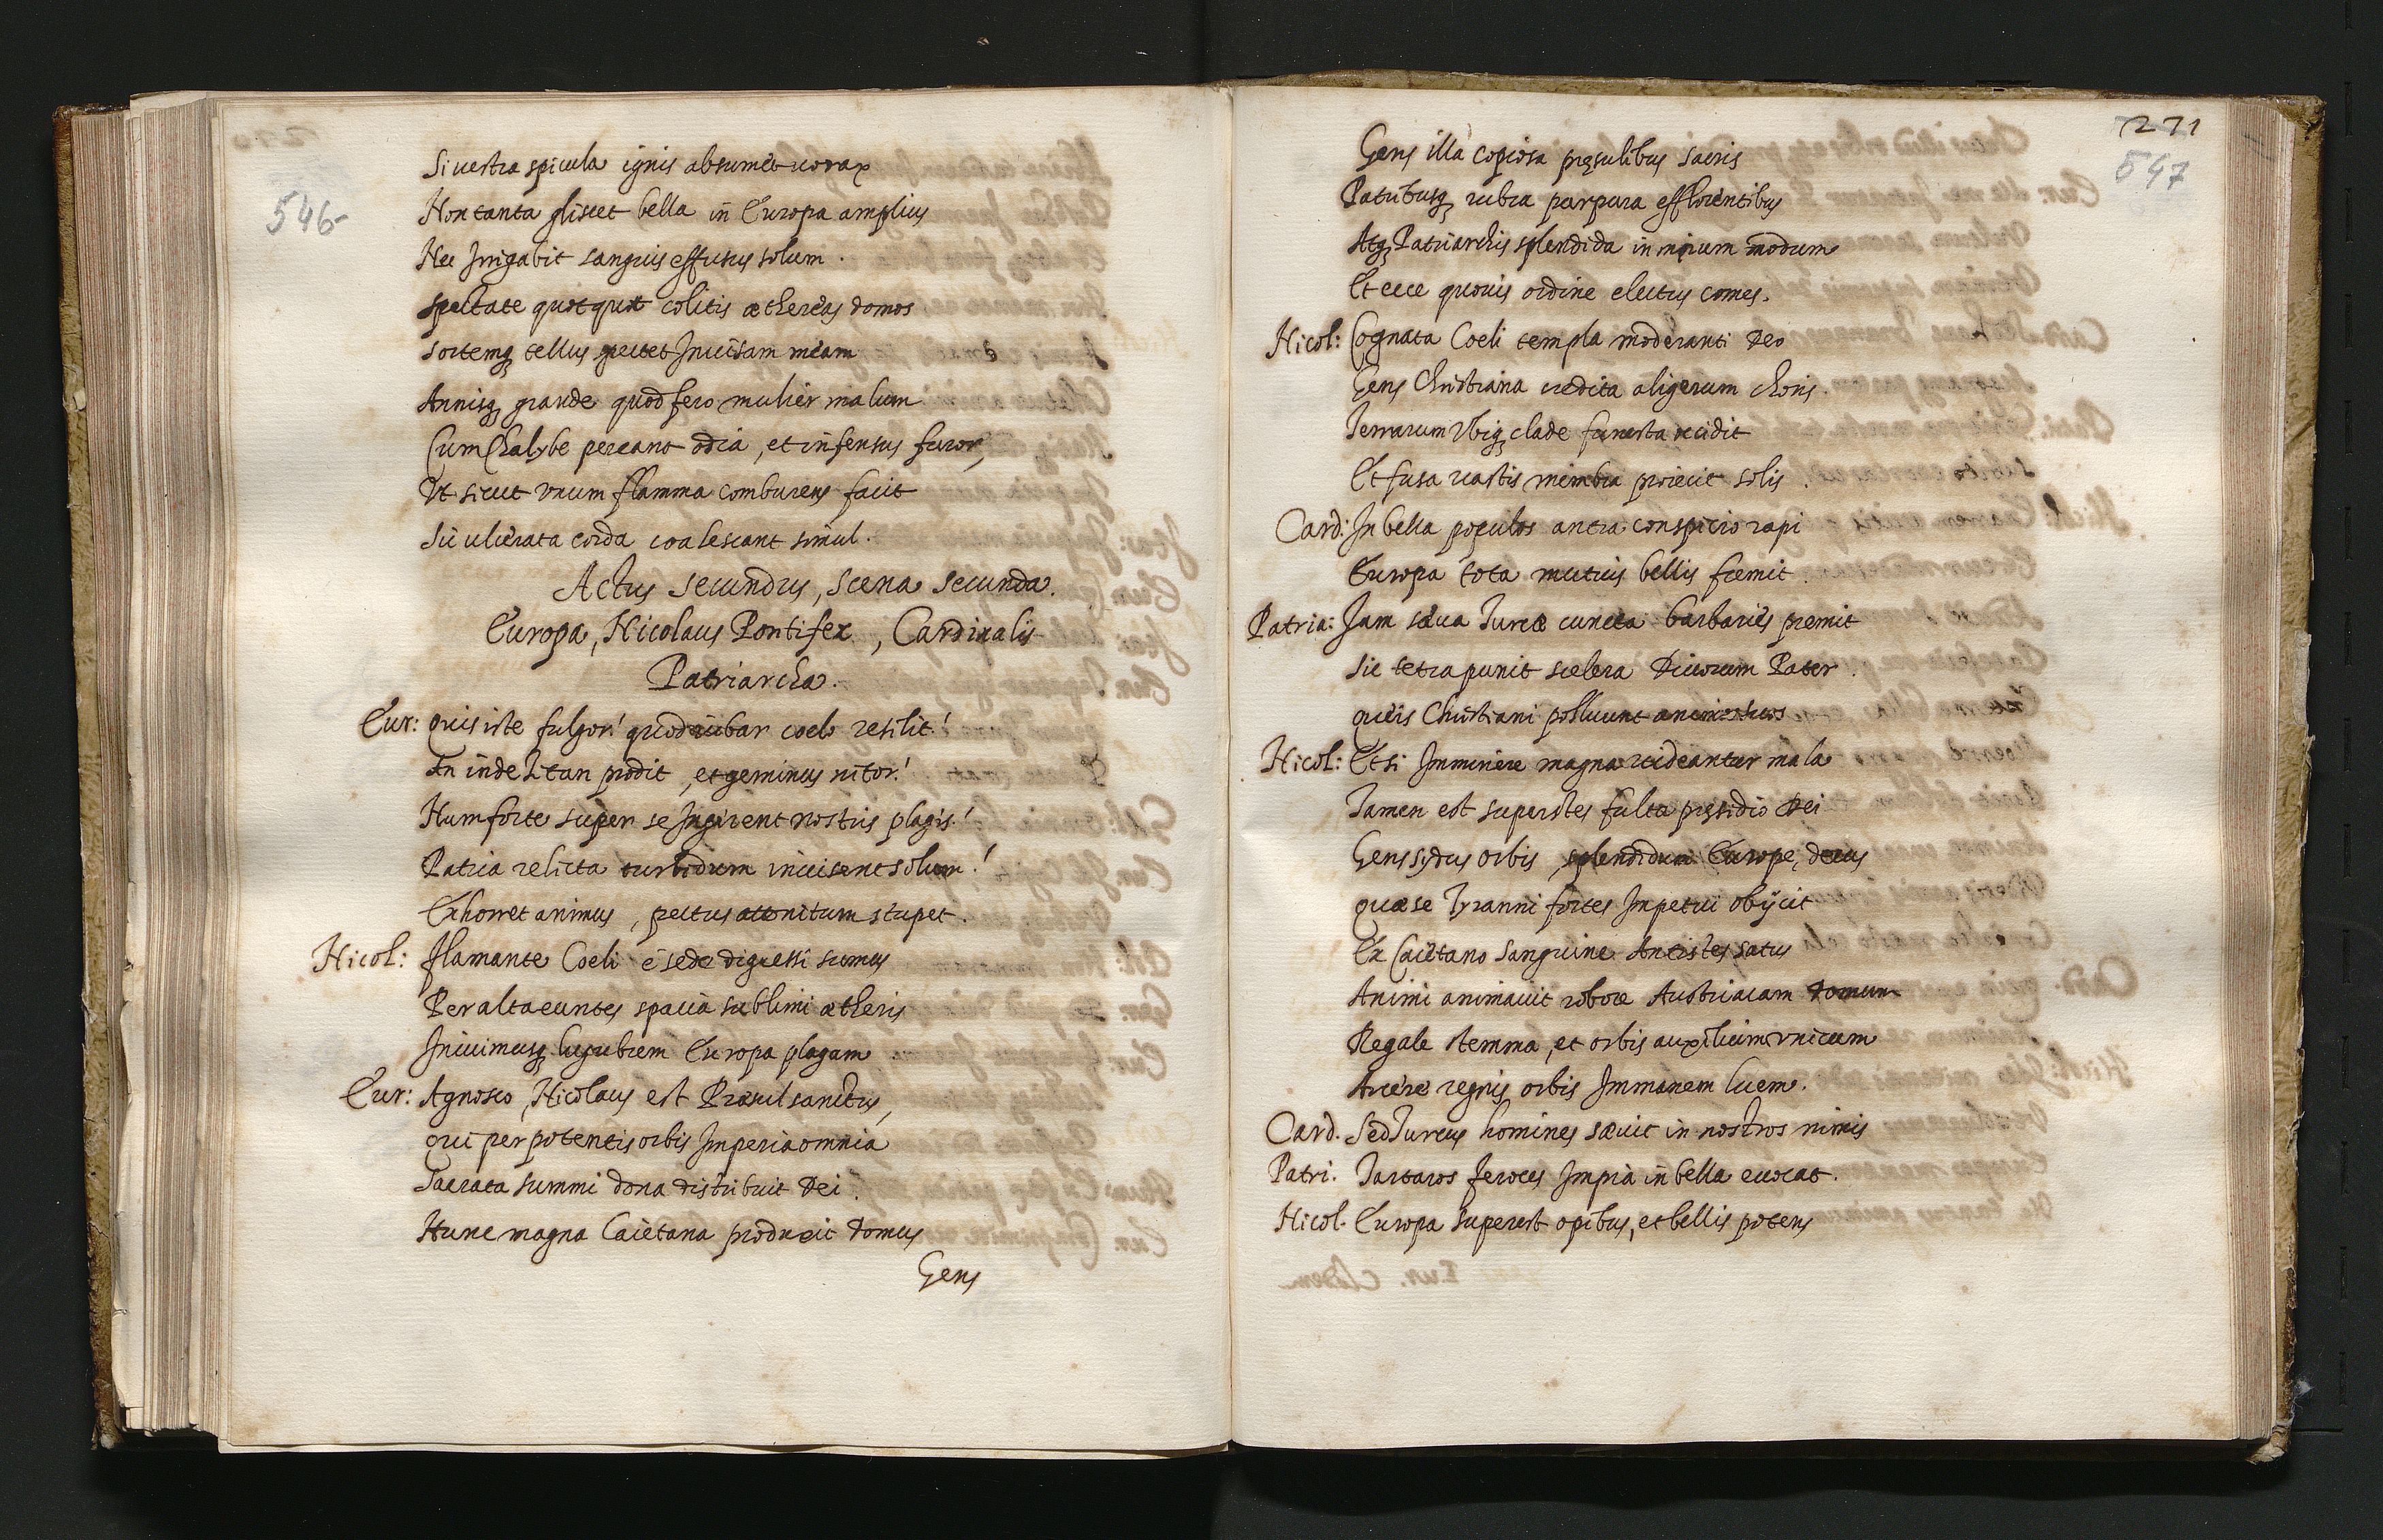 546
Si uestra spicula ignis absumet uorax
Non tanta gliscet bella in Europa amplius
Nec Irrigabit sanguis effusus solum.
Spectate quotquot colitis æthereas domos
Sortemq tellus spectet Inuisam meam
Annisq grande quod fero mulier malum
Cum Chalybe pereant odia, et infensus furor,
Vt sicut vnum flamma comburens facit
Sic ulcerata corda coalescant simul.
Actus secundus, Scena secunda.
Europa, Nicolaus Pontifex, Cardinalis
Patriarcha.
Eur: Quis iste fulgor! quod iubar coelo resilit!
En inde Titan prodit, et geminus nitor!
Num forte super se Ingerent nostris plagis!
Patria relicta turbidum inuisent solum!
Exhorret animus, pectus attonitum stupet.
Nicol: Flamante Coeli è sede digressi sumus
Per alta euntes spacia sublimi ætheris
Iniuimusq lugubrem Europa plagam.
Eur: Agnosco, Nicolaus est Præsul sanctus,
Qui per potentis orbis Imperia omnia
Sacrata summi dona distribuit Dei.
Hunc magna Caietana produxit domus
Gens
271
547
Gens illa copiosa pręsulibus sacris
Patribusq rubra purpura efflorentibus
Atq Patriarchis splendida in mirum modum
Et ecce quouis ordine electus comes.
Nicol: Cognata Coeli templa moderanti Deo
Gens Christiana credita aligerum choris.
Terrarum Vbiq clade funesta occidit
Et fusa uastis membra proiecit solis.
Card: In bella populos antra conspicio rapi
Europa tota mutuis bellis fremit.
Patria: Jam sæua Turcæ cuncta barbaries premit
Sic tetra punit scelera Diuorum Pater.
Quêis Christiani polluunt animos suos
Nicol: Etsi Imminere magna uideantur mala
Tamen est superstes fulta pręsidio Dei
Gens sydus orbis, splendidum Europę decus
Quæ se Tyranni fortes Impetui obijcit
Ex Caietano sanguine Antistes satus
Animi animauit robore Austriacam domum
Regale stemma, et orbis auxilium vnicum
Arcere regnis orbis Immanem luem.
Card. Sed Turcus homines sæuit in nostros nimis
Patri. Tartaros feroces Impia in bella euocat.
Nicol. Europa superest opibus, et bellis potens